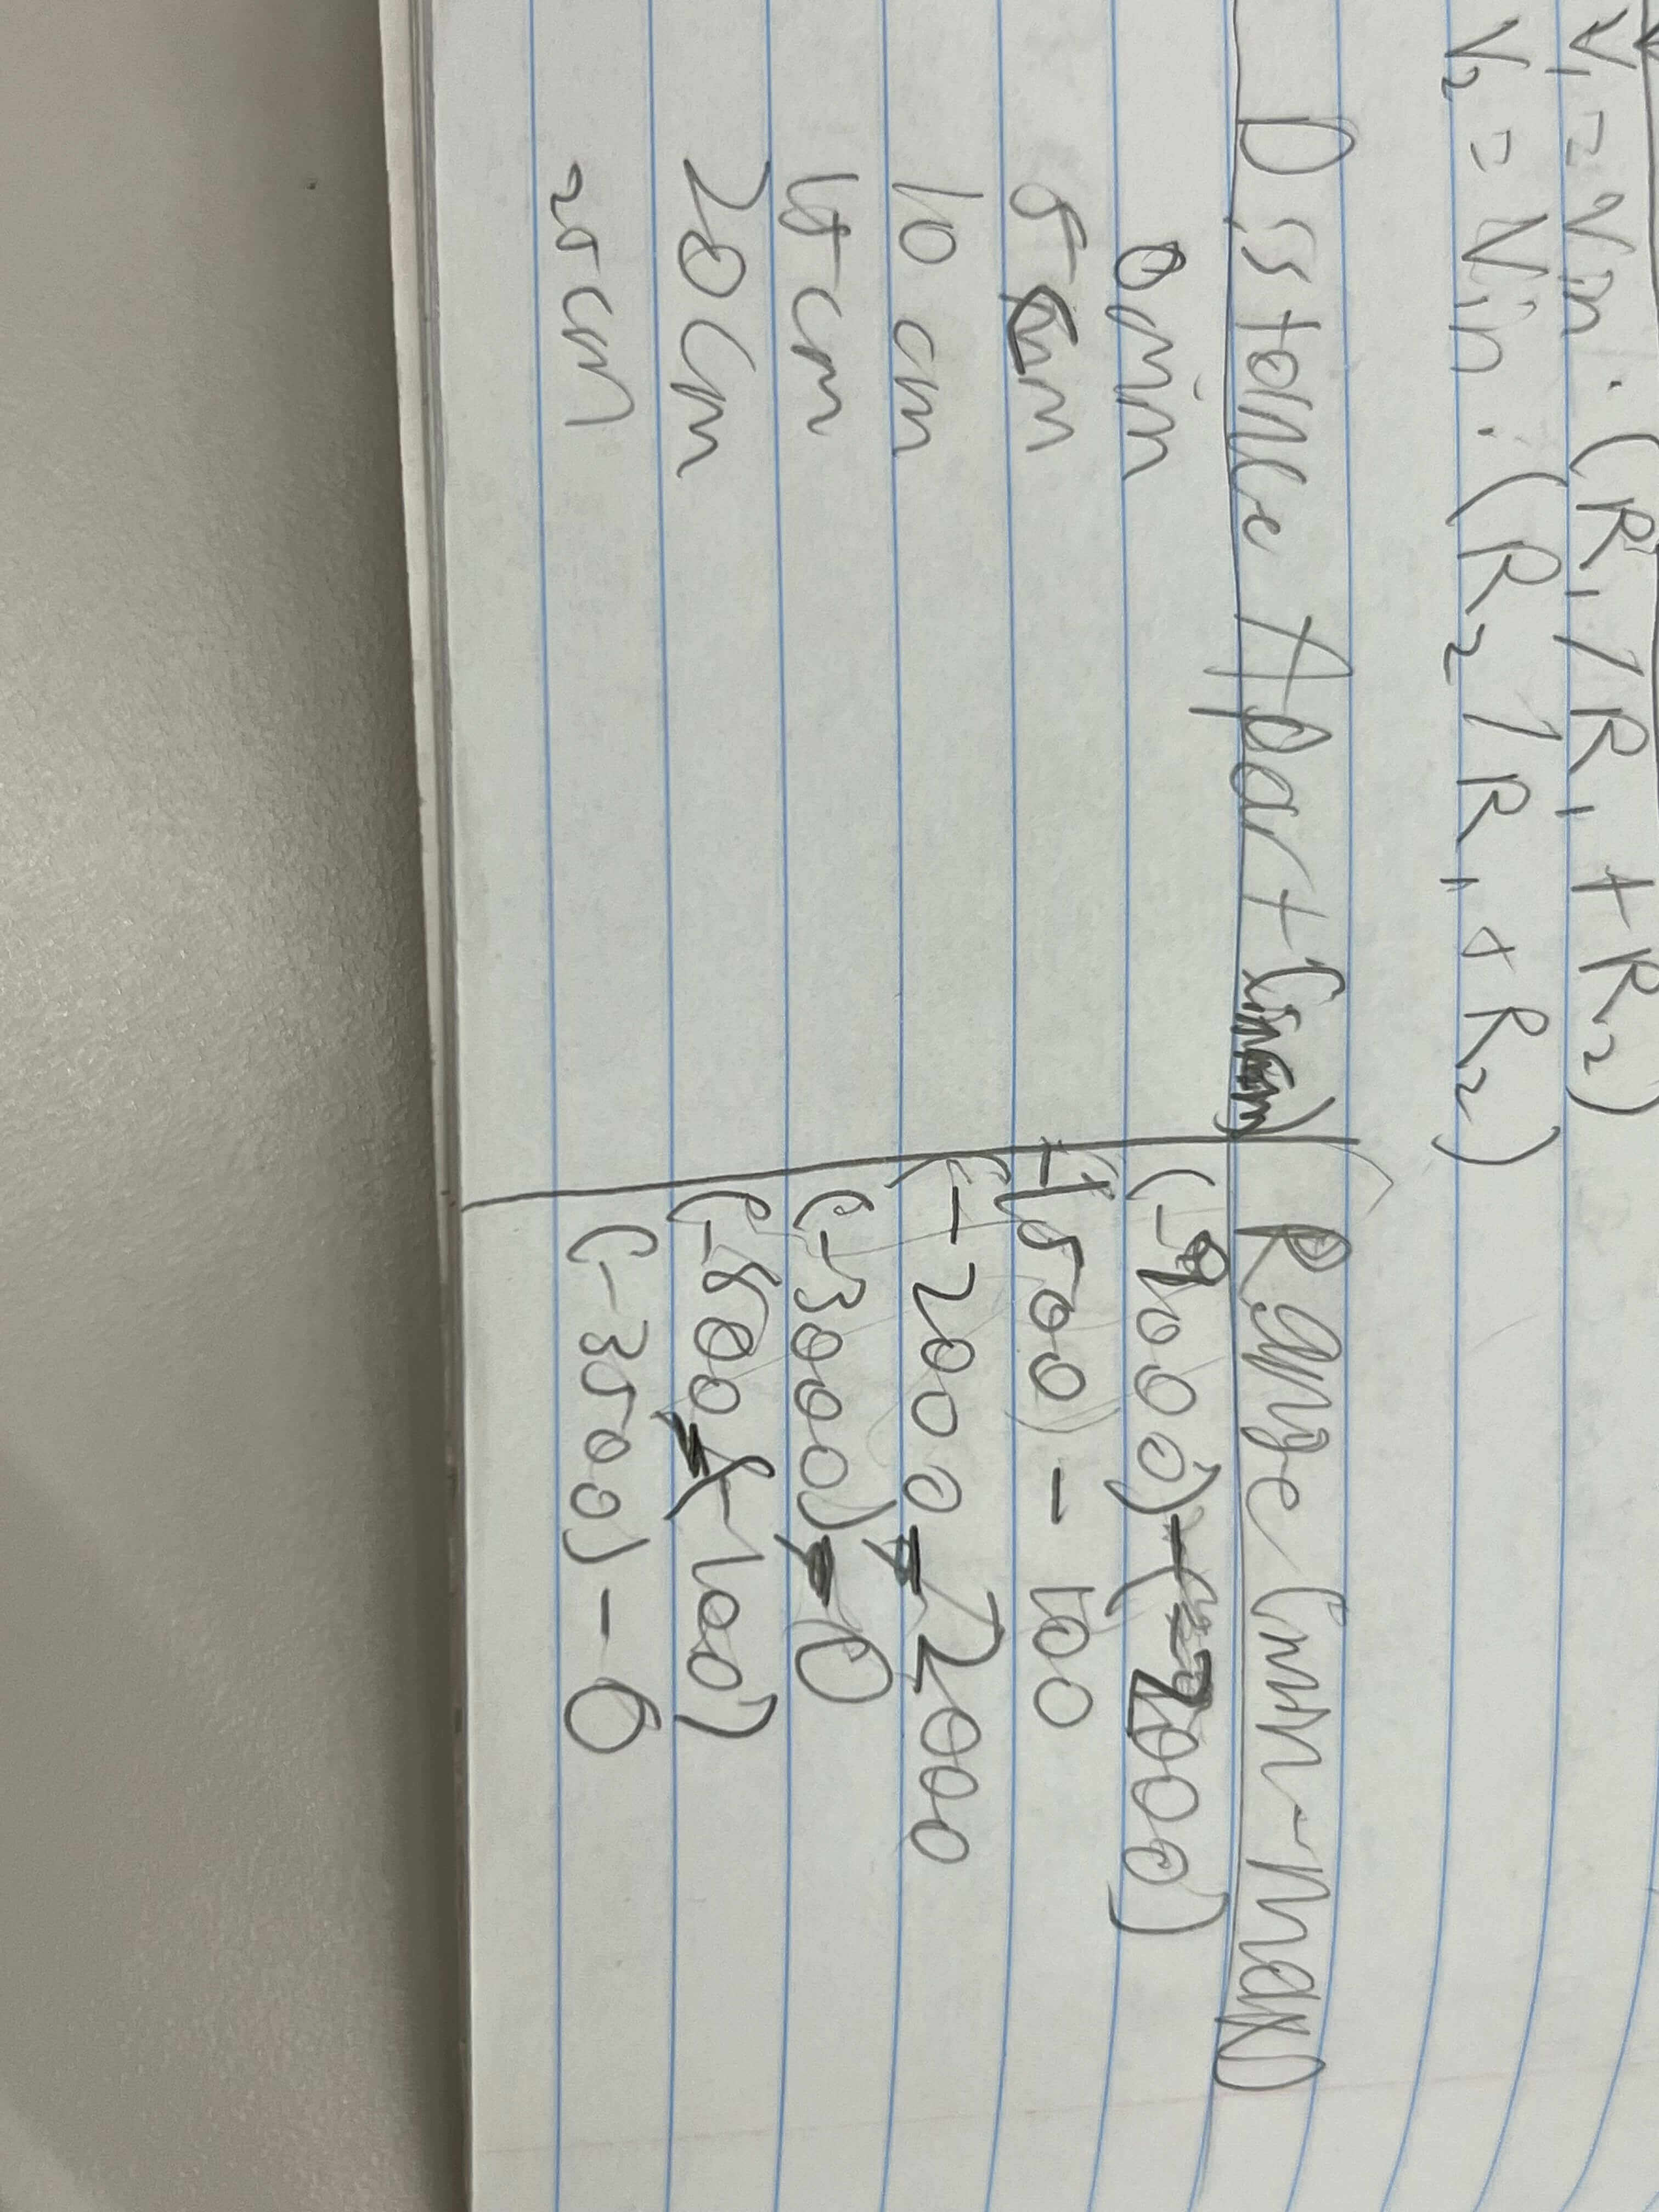 V₁ = Vin · (R₁ / R₁ + R₂)
V₂ = Vin · (R₂ / R₁ + R₂)
Distance Apart Range (min-max)
0 min (-9000)-(-7000)
5 cm (-1500) - 100
10 cm (-2000 - 2000
15 cm (-3000) - 0
20 cm (-800 - (-100)
25 cm (-3500) - 0